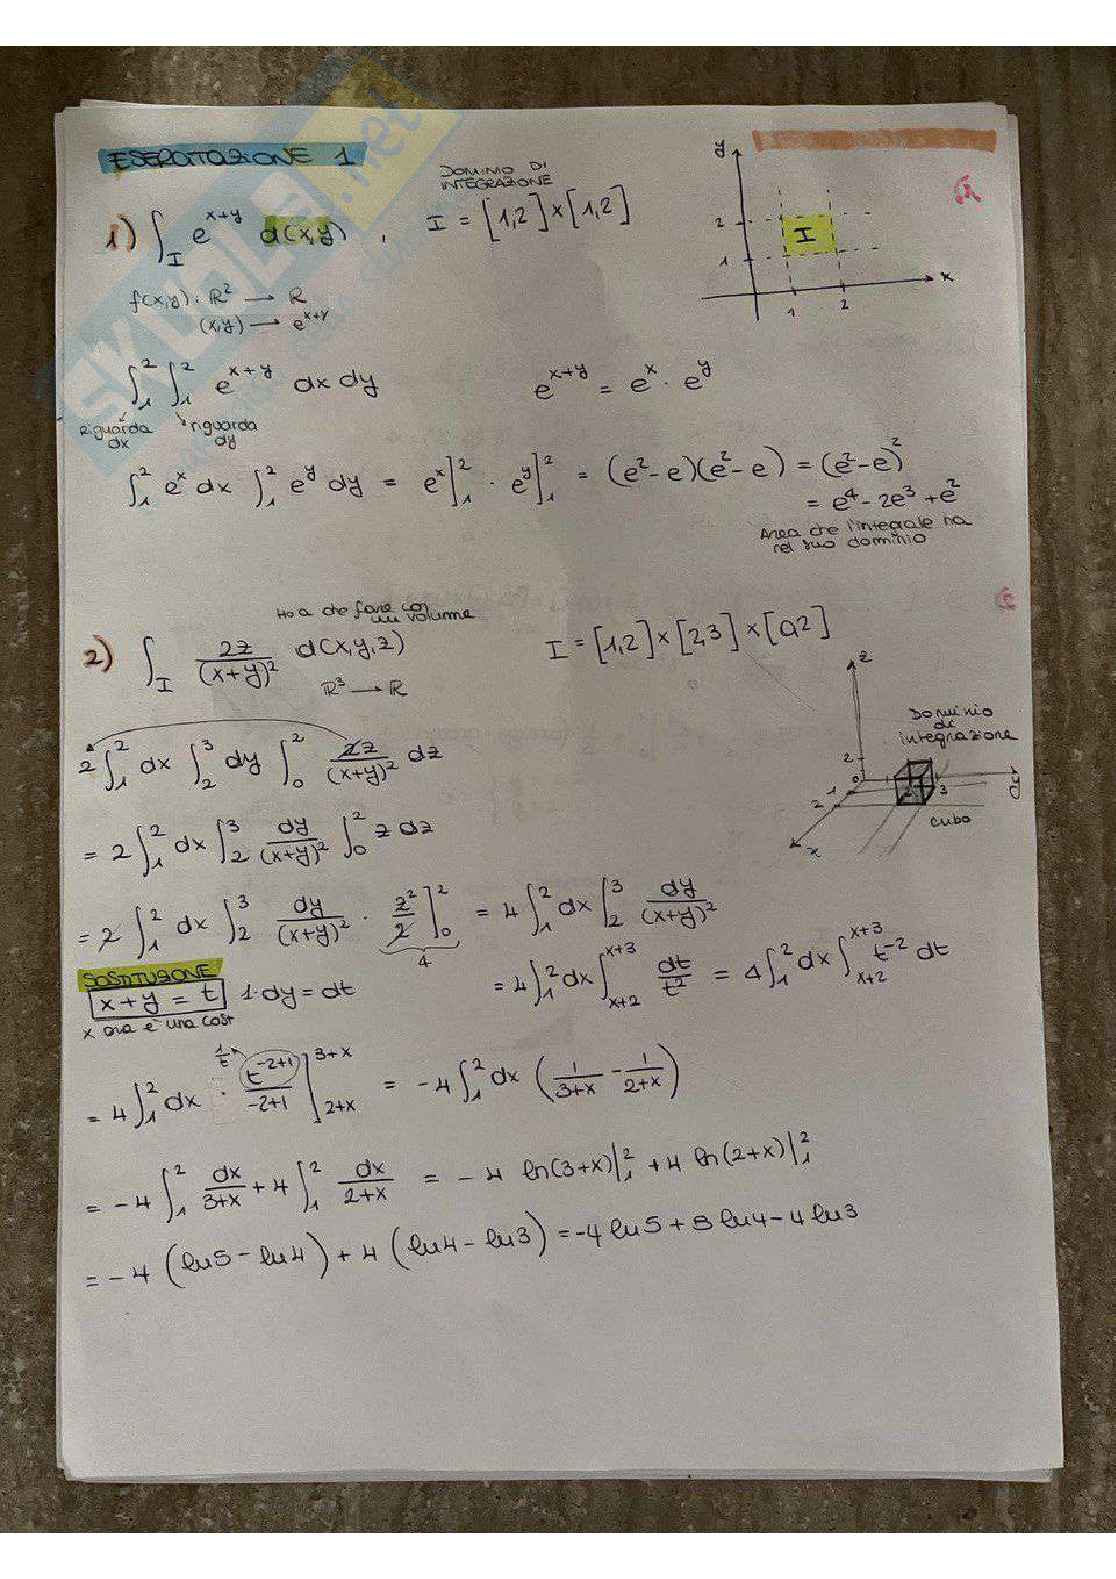 ESERCITAZIONE 1
DOMINIO DI
INTEGRAZIONE
1) ∫_I e^{x+y} d(x,y) , I = [1,2] × [1,2]
y
2
1
I
x
1 2
f(x,y): ℝ² → ℝ
(x,y) → e^{x+y}
∫_1^2 ∫_1^2 e^{x+y} dx dy e^{x+y} = e^x · e^y
Riguarda
dx
riguarda
dy
∫_1^2 e^x dx ∫_1^2 e^y dy = e^x]_1^2 · e^y]_1^2 = (e²-e)(e²-e) = (e²-e)²
= e⁴ - 2e³ + e²
Area che l'integrale ha
nel suo dominio
Ho a che fare con
un volume
2) ∫_I 2z/(x+y)² d(x,y,z) I = [1,2] × [2,3] × [0,2]
ℝ³ → ℝ
z
Dominio
di
integrazione
2
0
1
2
2
3
y
cubo
x
2 ∫_1^2 dx ∫_2^3 dy ∫_0^2 2z/(x+y)² dz
= 2 ∫_1^2 dx ∫_2^3 dy/(x+y)² ∫_0^2 z dz
= 2 ∫_1^2 dx ∫_2^3 dy/(x+y)² · z²/2]_0^2 = 4 ∫_1^2 dx ∫_2^3 dy/(x+y)²
4
SOSTITUZIONE
x+y = t 1·dy = dt = 4 ∫_1^2 dx ∫_{x+2}^{x+3} dt/t² = 4 ∫_1^2 dx ∫_{x+2}^{x+3} t^{-2} dt
x ora è una cost
1/t
= 4 ∫_1^2 dx · t^{-2+1}/-2+1 |_{2+x}^{3+x} = -4 ∫_1^2 dx (1/3+x - 1/2+x)
= -4 ∫_1^2 dx/3+x + 4 ∫_1^2 dx/2+x = -4 ln(3+x)|_1^2 + 4 ln(2+x)|_1^2
= -4 (ln5 - ln4) + 4 (ln4 - ln3) = -4 ln5 + 8 ln4 - 4 ln3